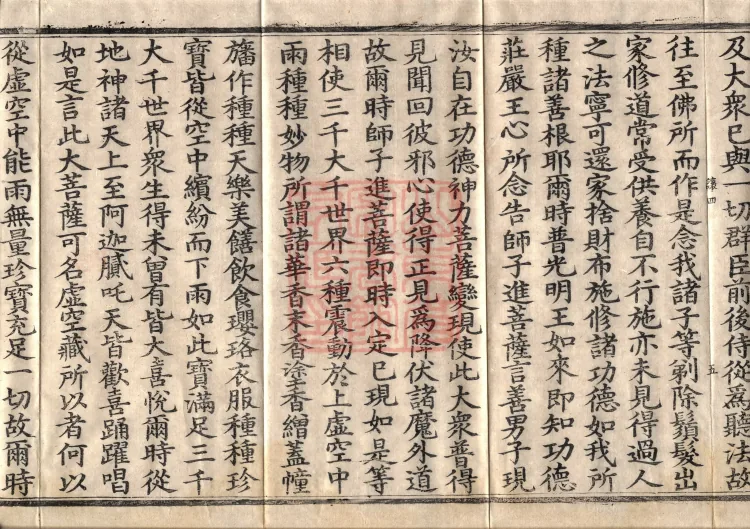 及大衆已與一切群臣前後侍從爲聽法故
往至佛所而作是念我諸子等剃除鬚髮出
家修道常受供養自不行施亦未見得過人
之法寧可還家捨財布施修諸功德如我所
種諸善根耶爾時普光明王如來即知功德
莊嚴王心所念告師子進菩薩言善男子現
汝自在功德神力菩薩變現使此大衆普得
見聞回彼邪心使得正見爲降伏諸魔外道
故爾時師子進菩薩即時入定已現如是等
相使三千大千世界六種震動於上虛空中
雨種種妙物所謂諸華香末香塗香繒蓋幢
旛作種種天樂美饍飲食瓔珞衣服種種珍
寶皆從空中繽紛而下雨如此寶滿足三千
大千世界衆生得未曾有皆大喜悅爾時從
地神諸天上至阿迦膩吒天皆歡喜踊躍唱
如是言此大菩薩可名虛空藏所以者何以
從虛空中能雨無量珍寶充足一切故爾時
五